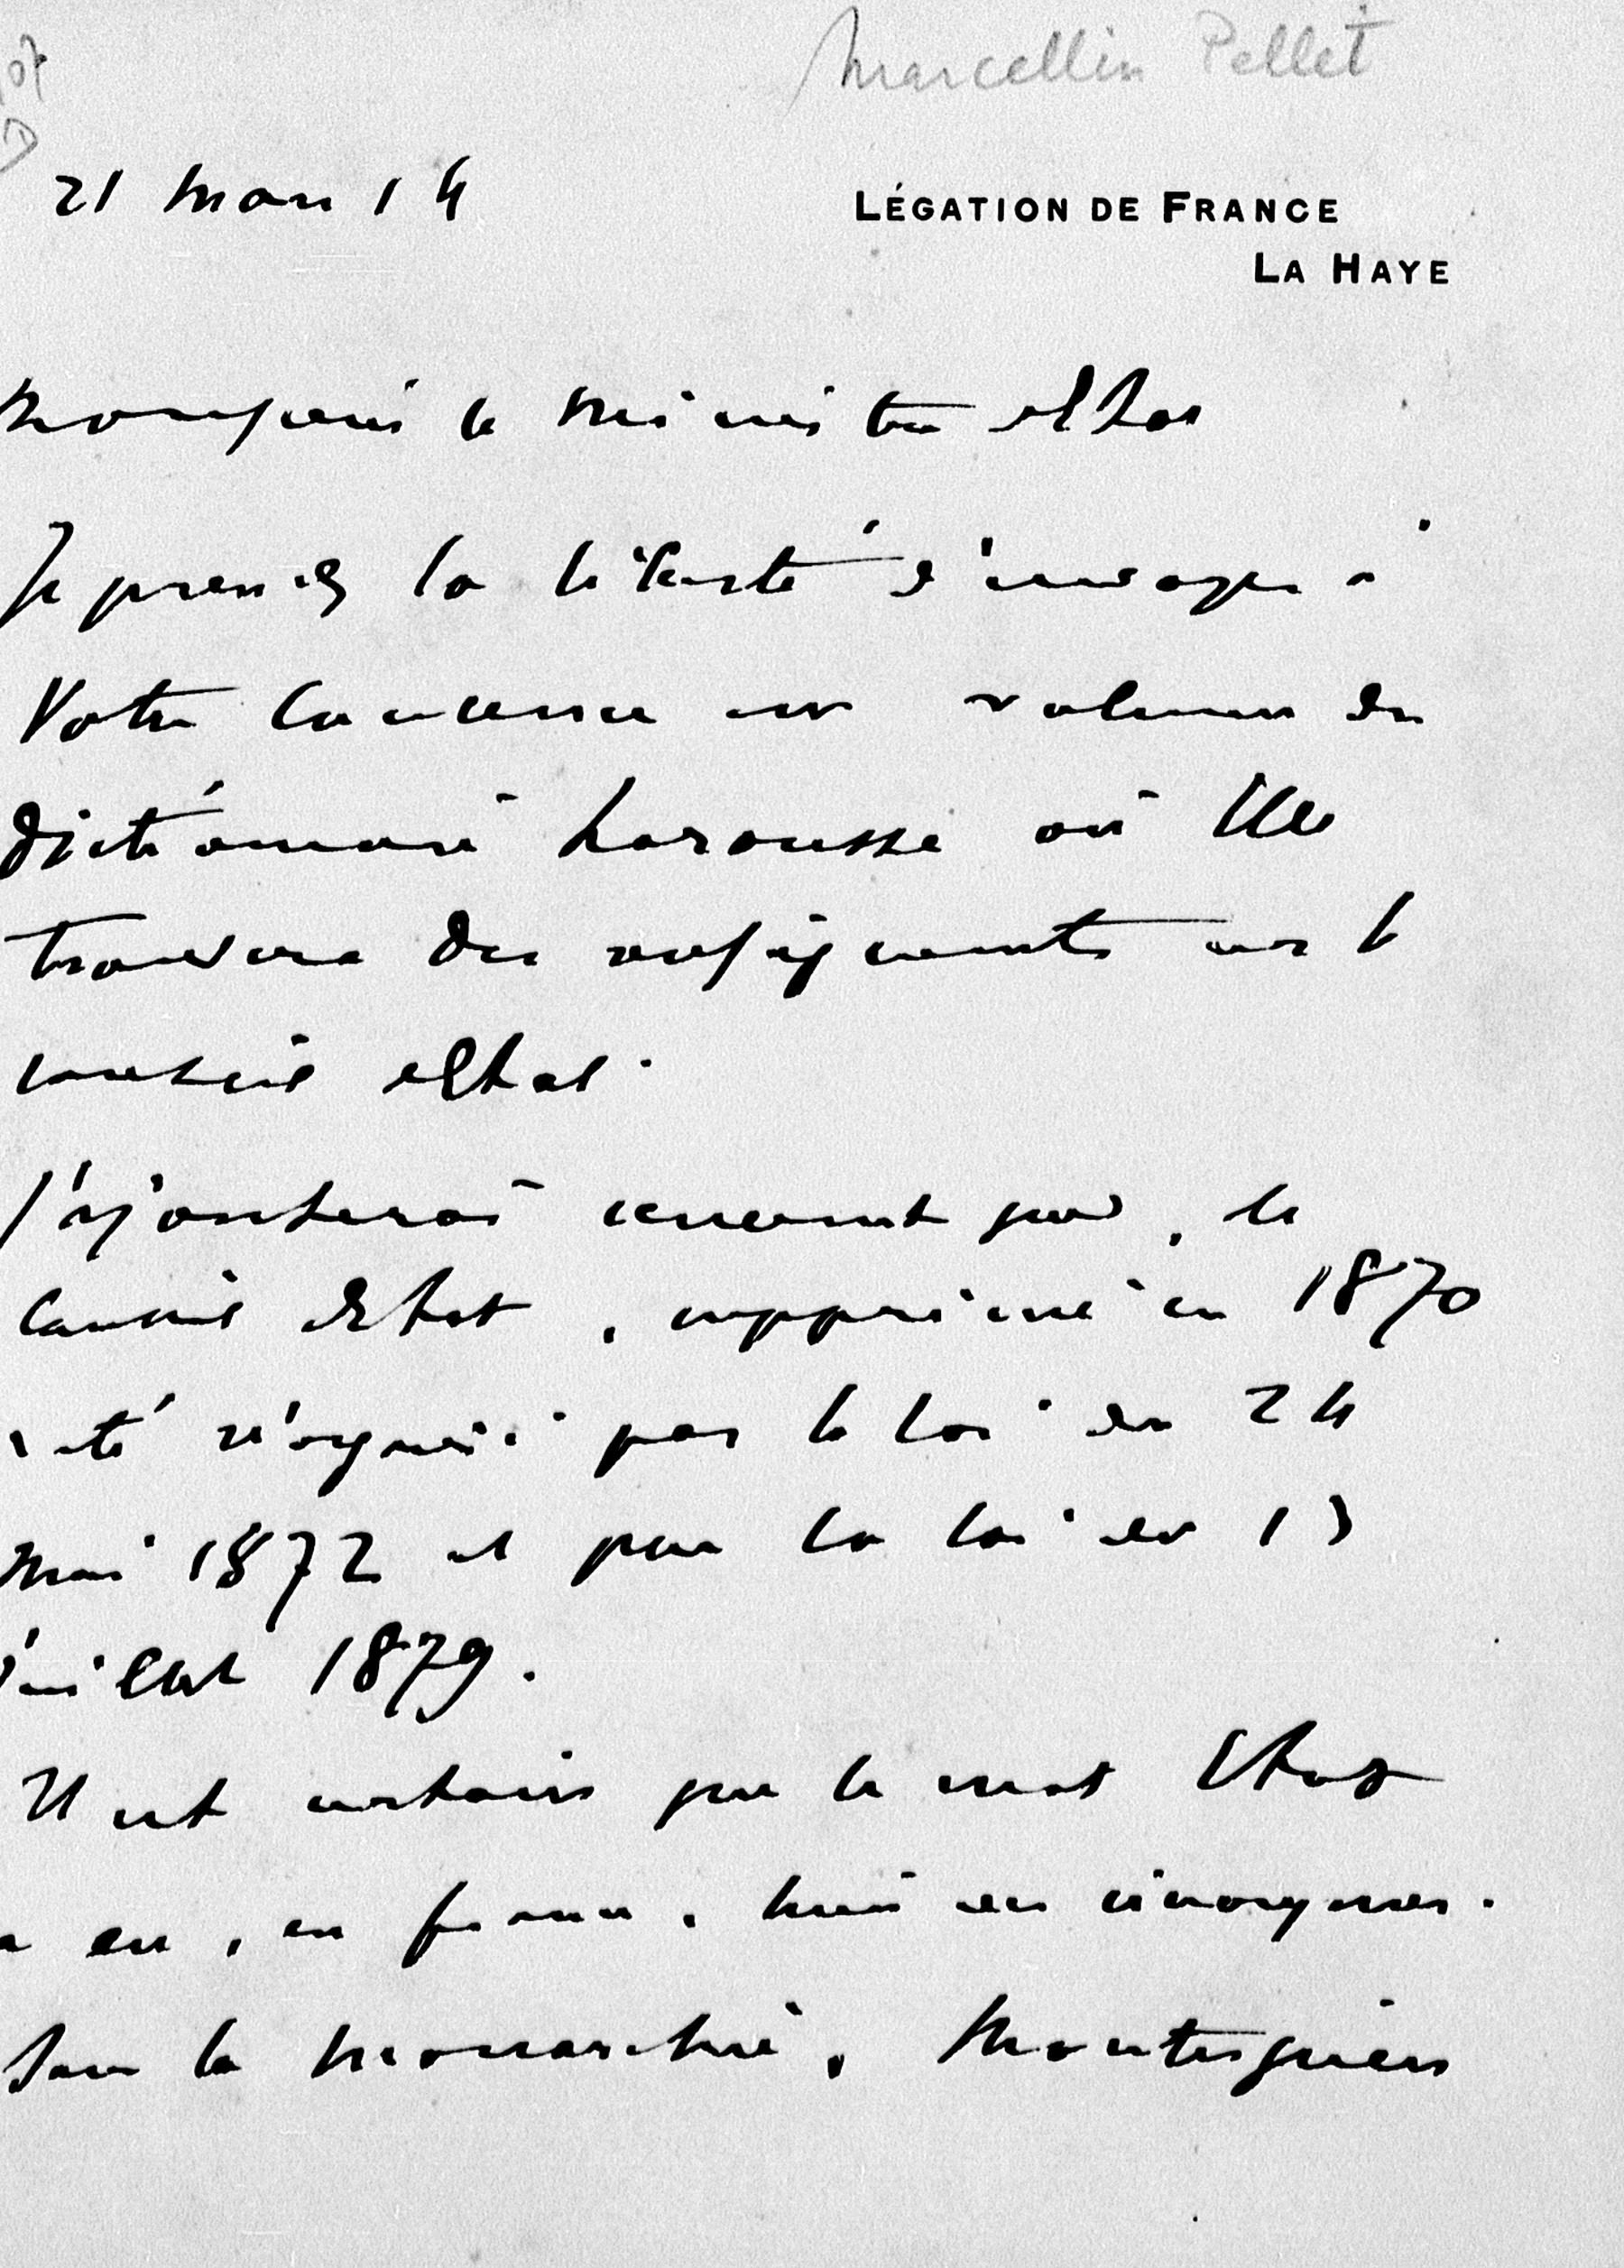 Marcellin Pellet
21 Mars 14
LÉGATION DE FRANCE
LA HAYE
Monsieur le Ministre d'Etat
Je prends la liberté d'envoyer à
Votre Excellence un volume du
dictionnaire Larousse où Elle
trouvera des renseignements sur le
conseil d'Etat.
J'ajouterai seulement que, le
Conseil d'Etat, supprimé en 1870
a été réorganisé par la loi du 24
mai 1872 et par la loi du 13
juillet 1879.
Il est certain que le mot Etat
a eu, en France, bien des synonymes.
Sous la monarchie, Montesquieu